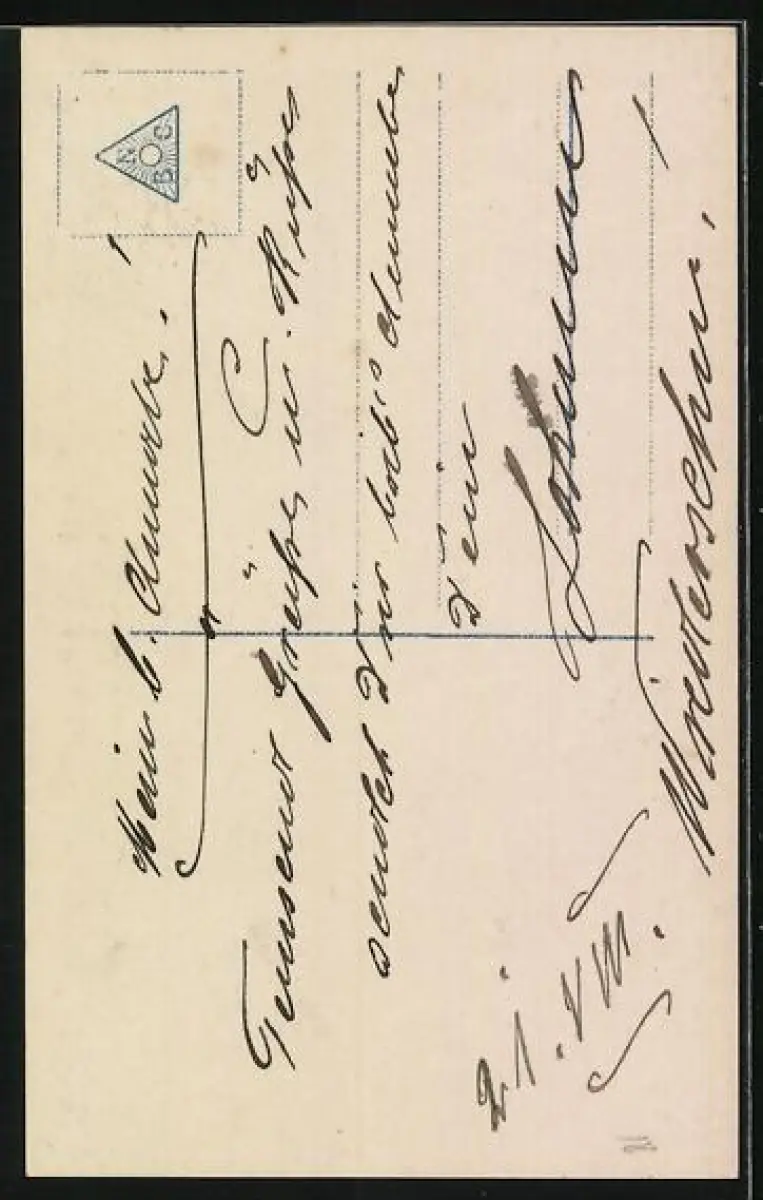 N
B C
Mein l. Annerle!
Tausend Grüße u. Küße,
sendet Dir lieb's Annerle,
Dein
Wiedersehn!
21. VIII.